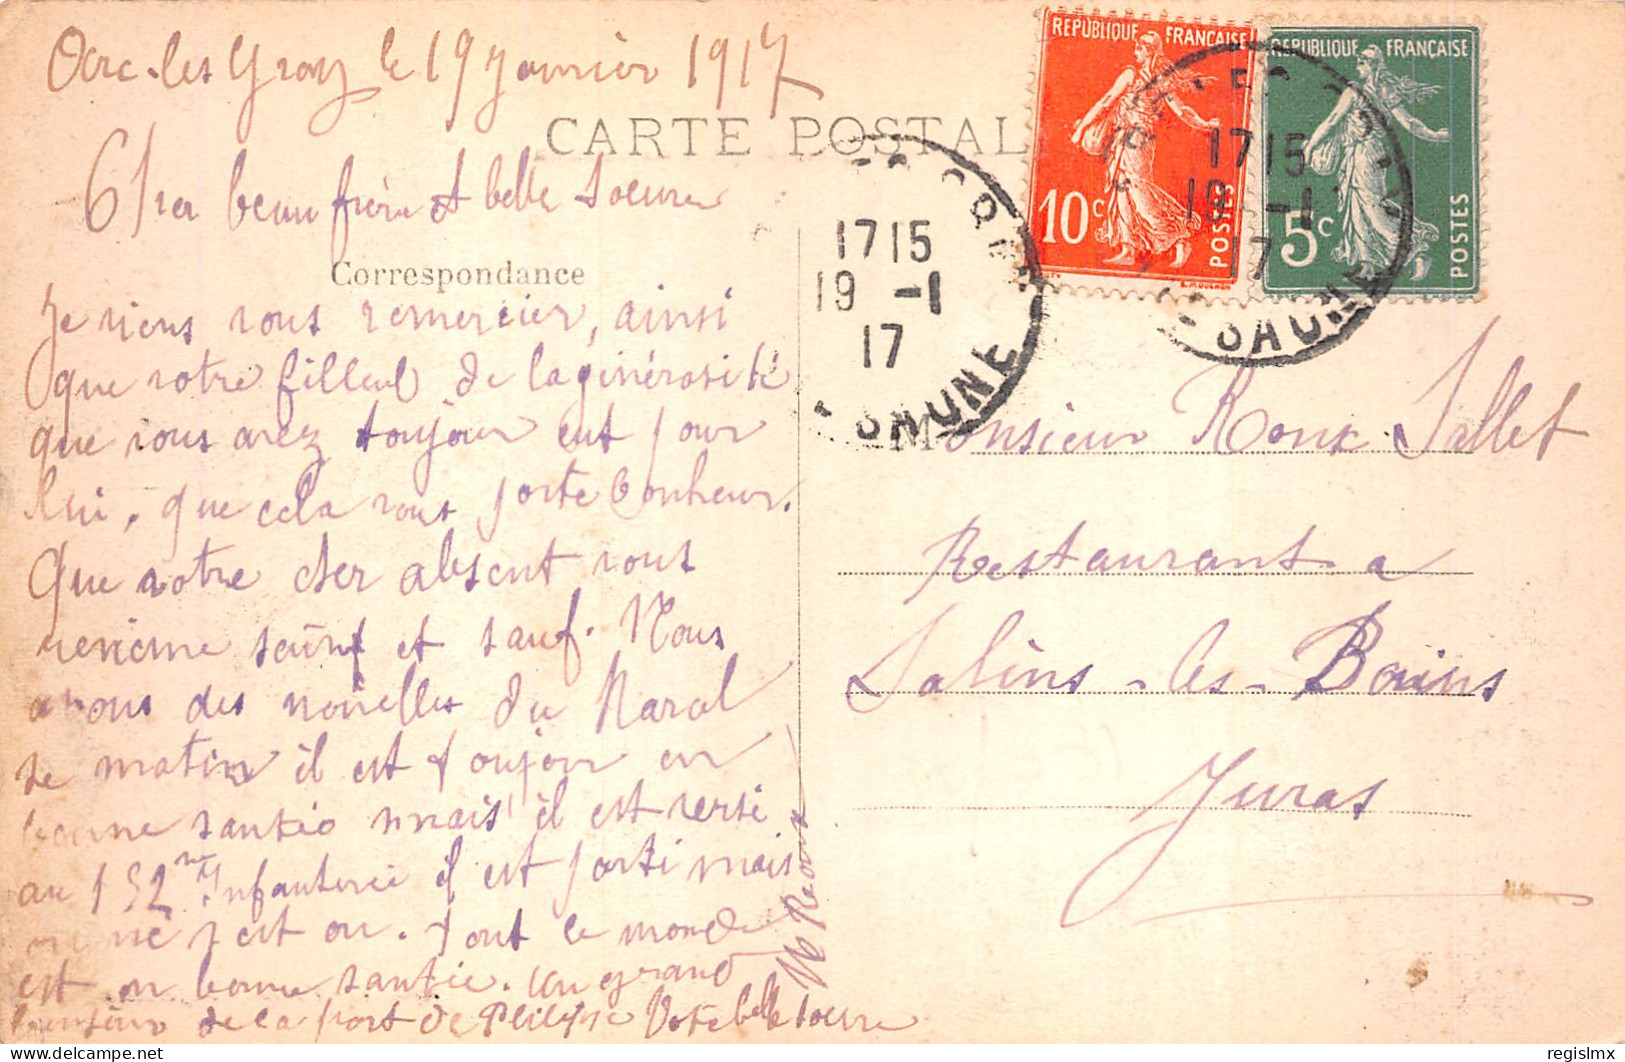 Arc-les Gray le 19 Janvier 1917
CARTE POSTAL
beau frère et belle soeure
Correspondance
Je viens vous remercier, ainsi
que votre filleul de la ginérosité
que vous avez toujour eut pour
lui, que cela vous porte bonheur.
Que votre cher absent vous
revienne sainf et sauf. Nous
avons des nouvelles du Maral
se matin il est toujour en
bonne santée mais il est versé
au 152me Infanterie il est parti mais
on ne s est ou. tout le monde
est en bonne santée. un grand
bonjour de la part de Philippe Votre belle soeure
RÉPUBLIQUE FRANÇAISE
10c
POSTES
L.MOUCHON
RÉPUBLIQUE FRANÇAISE
5c
POSTES
1715
19 -1
17
SAONE
1715
19 -1
17
SAONE
Monsieur Roux Sallet
Restaurant a
Salins-les-Bains
Juras
regislmx
www.delcampe.net